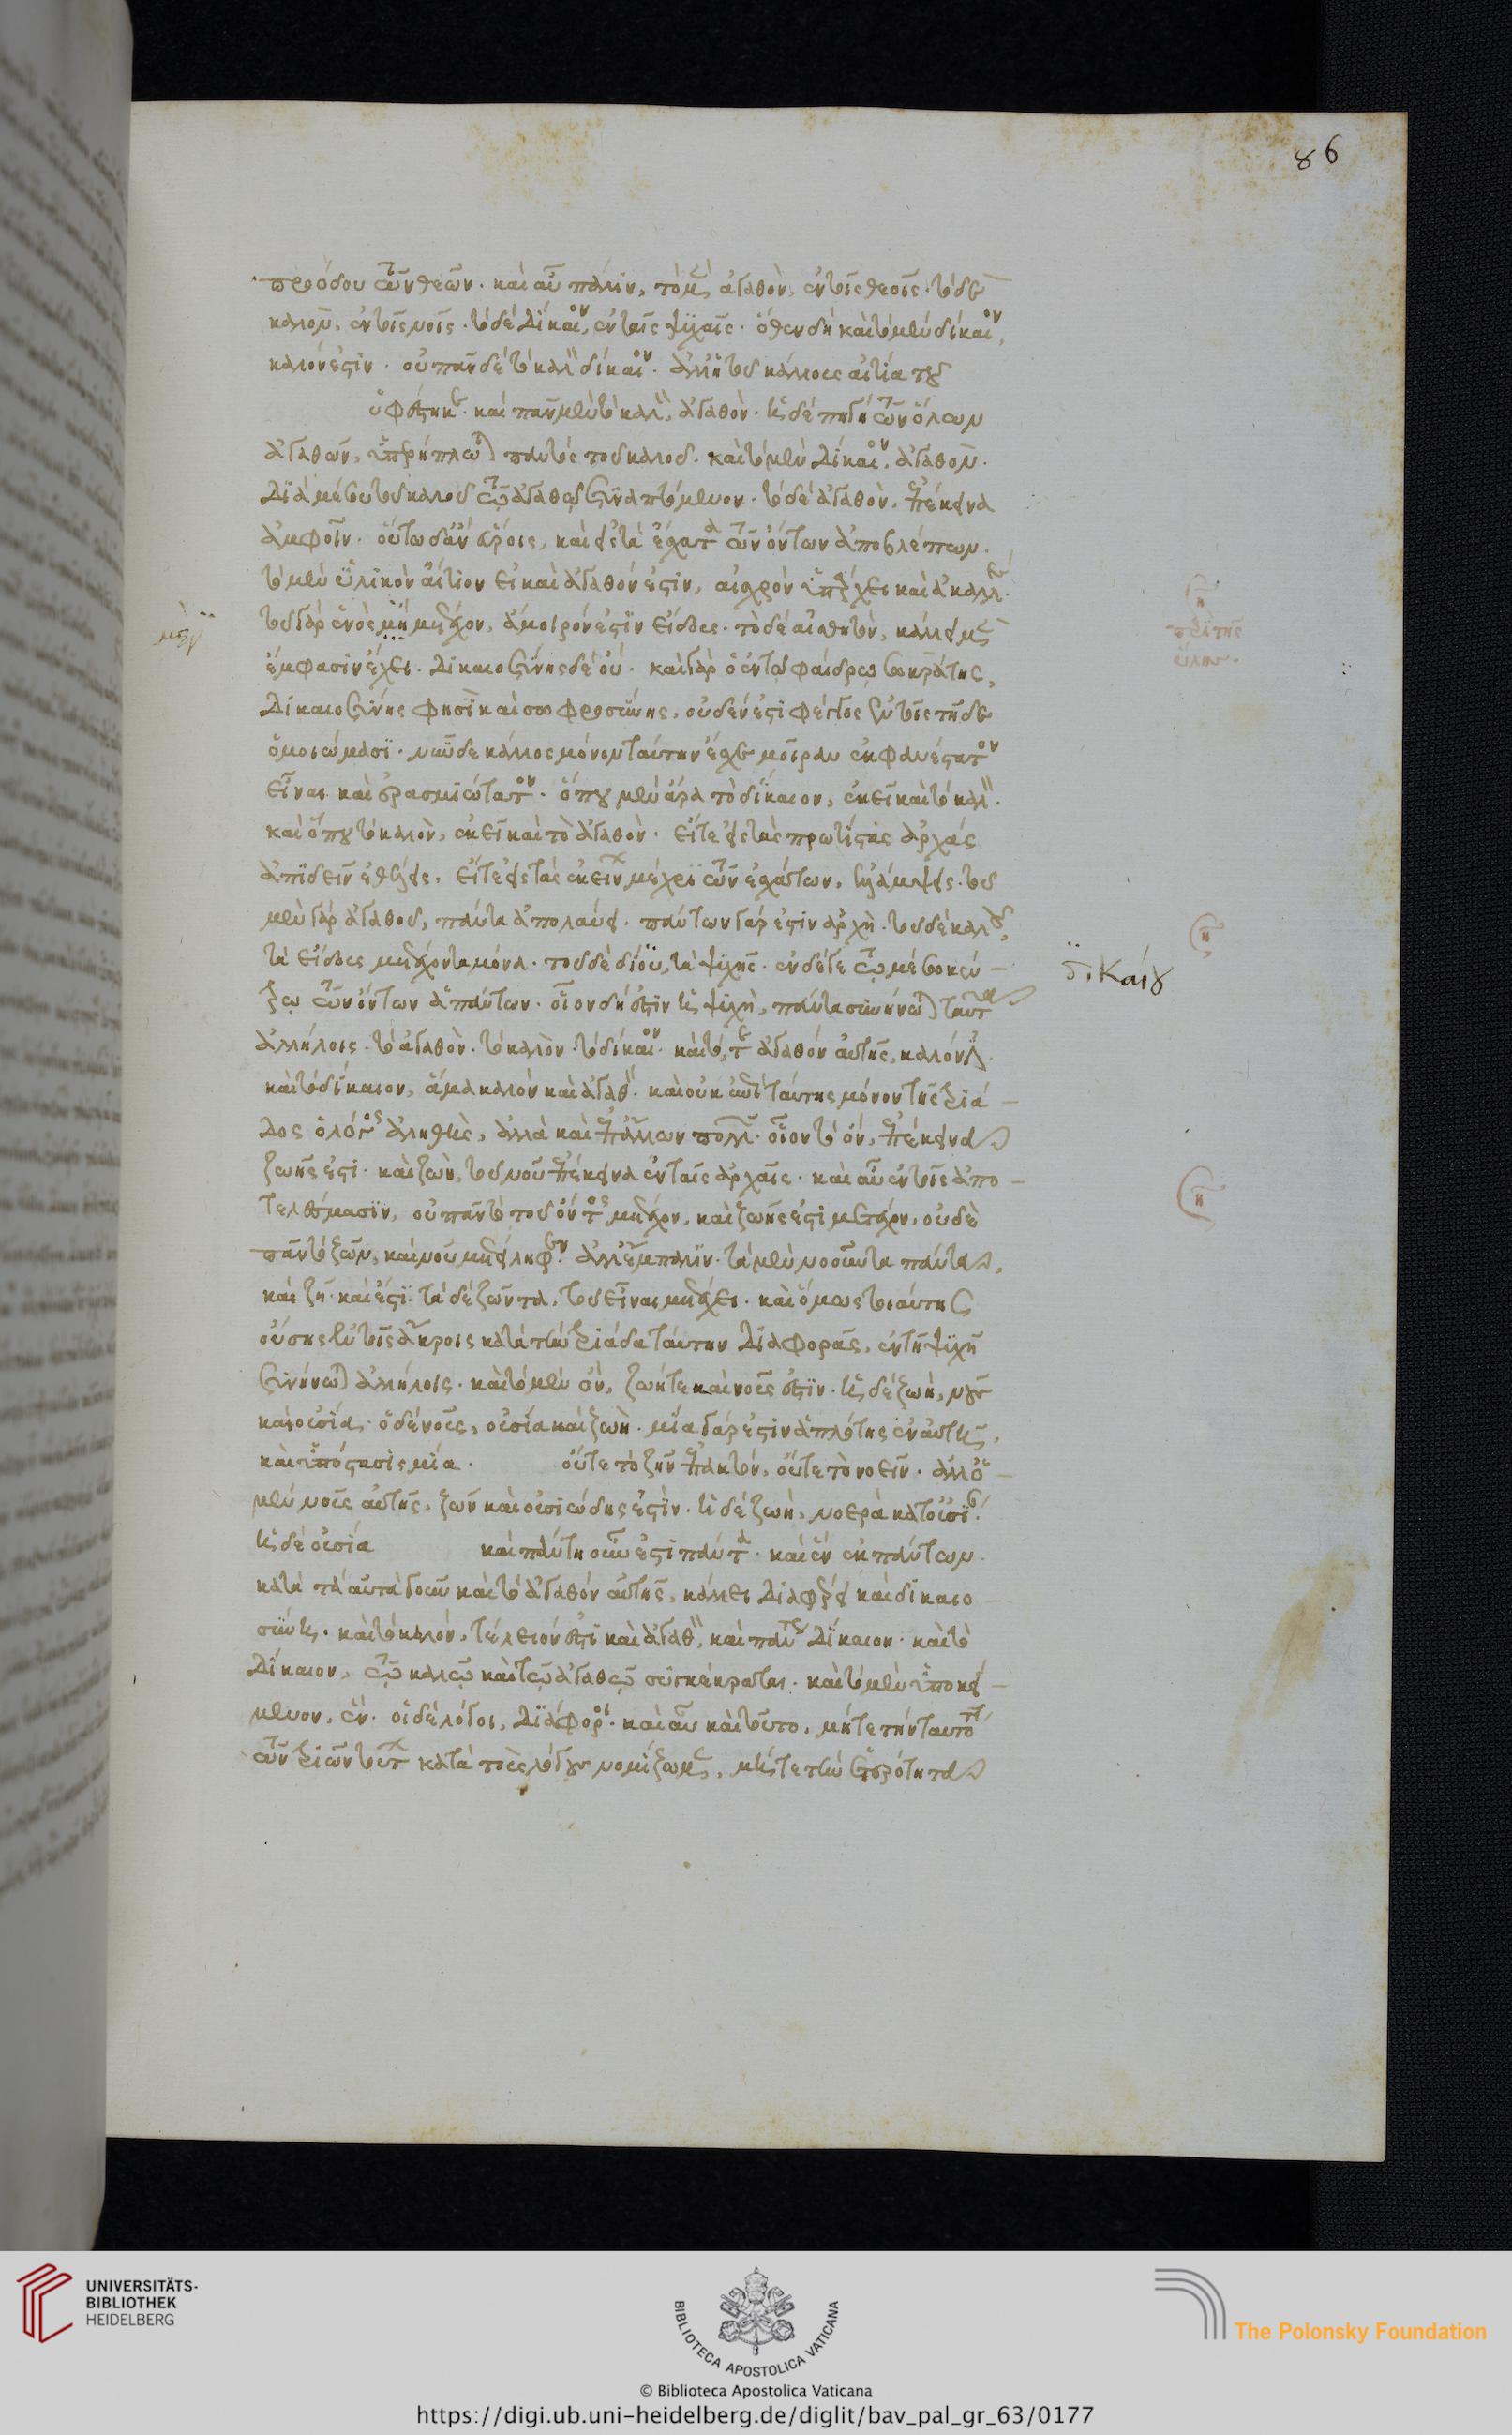 προόδου τῶν θεῶν. καὶ αὖ πάλιν, τὸ μὲν ἀγαθὸν, ἐν τοῖς θεοῖς. τὸ δὲ
καλὸν, ἐν τοῖς νοῖς. τὸ δὲ δίκαιον, ἐν ταῖς ψυχαῖς. ὅθεν δὴ καὶ τὸ μὲν δίκαιον,
καλόν ἐστιν. οὐ πᾶν δὲ τὸ καλὸν δίκαιον. ἀλλ' ἡ τοῦ κάλλους αἰτία τοῦ
ὑφέστηκε. καὶ πᾶν μὲν τὸ καλὸν, ἀγαθὸν. ἡ δὲ πηγὴ τῶν ὅλων
ἀγαθῶν, ὑπερήπλωται παντὸς τοῦ καλοῦ. καὶ τὸ μὲν δίκαιον, ἀγαθὸν.
διὰ μέσου τοῦ καλοῦ τῷ ἀγαθῷ συναπτόμενον. τὸ δὲ ἀγαθὸν, ἐπέκεινα
ἀμφοῖν. οὕτω δ' ἂν εὕροις, καὶ εἰς τὰ ἔσχατα τῶν ὄντων ἀποβλέπων.
τὸ μὲν ὑλικὸν αἴτιον εἰ καὶ ἀγαθόν ἐστιν, αἰσχρὸν ὑπάρχει καὶ ἀκαλλές.
τοῦ γὰρ ἑνὸς μὴ μετέχον, ἄμοιρόν ἐστιν εἴδους. τὸ δὲ αἰσθητὸν, κάλλους μὲν
ἔμφασιν ἔχει. δικαιοσύνης δὲ οὔ. καὶ γὰρ ὁ ἐν τῷ φαίδρῳ σωκράτης,
δικαιοσύνης φησὶ καὶ σωφροσύνης, οὐδέν ἐστι φέγγος ἐν τοῖς τῇδε
ὁμοιώμασι. νῦν δὲ κάλλος μόνον ταύτην ἔσχε μοῖραν ἐκφανέστατον
εἶναι καὶ ἐρασμιώτατον. ὅπου μὲν ἄρα τὸ δίκαιον, ἐκεῖ καὶ τὸ καλόν.
καὶ ὅπου τὸ καλὸν, ἐκεῖ καὶ τὸ ἀγαθὸν. εἴτε εἰς τὰς πρωτίστας ἀρχὰς
ἀπιδεῖν ἐθέλεις, εἴτε εἰς τὰς ἐκείνων μέχρι τῶν ἐσχάτων ἐλλάμψεις. τοῦ
μὲν γὰρ ἀγαθοῦ, πάντα ἀπολαύει. πάντων γάρ ἐστιν ἀρχὴ. τοῦ δὲ καλοῦ,
τὰ εἴδους μετέχοντα μόνα. τοῦ δὲ δίου, τὰ ψυχῆς. ἐν δέ γε τῷ μέσῳ κέν-
τρῳ τῶν ὄντων ἁπάντων. οἷον δή ἐστιν ἡ ψυχὴ, πάντα συνήνωται ταῦτα
ἀλλήλοις. τὸ ἀγαθὸν. τὸ καλὸν. τὸ δίκαιον. καὶ τό, τε ἀγαθόν αὐτῆς, καλόν ἐστι.
καὶ τὸ δίκαιον, ἅμα καλὸν καὶ ἀγαθόν. καὶ οὐκ ἐπὶ ταύτης μόνον τῆς τριά-
δος ὁ λόγος ἀληθὴς, ἀλλὰ καὶ ἐπ' ἄλλων πολλῶν. οἷον τὸ ὂν, ἐπέκεινα
ζωῆς ἐστι. καὶ ζωὴ, τοῦ νοῦ ἐπέκεινα ἐν ταῖς ἀρχαῖς. καὶ αὖ ἐν τοῖς ἀπο-
τελέσμασιν, οὐ πᾶν τὸ τοῦ ὄντος μετέχον, καὶ ζωῆς ἐστι μετέχον, οὐδὲ
πᾶν τὸ ζῶν, καὶ νοῦ μετείληφεν. ἀλλ' ἔμπαλιν. τὰ μὲν νοοῦντα πάντα,
καὶ ζῇ. καὶ ἔστι. τὰ δὲ ζῶντα, τοῦ εἶναι μετέχει. καὶ ὅμως τοιαύτης
οὔσης ἐν τοῖς ἄκροις κατὰ τὴν τριάδα ταύτην διαφορᾶς, ἐν τῇ ψυχῇ
συνήνωται ἀλλήλοις. καὶ τὸ μὲν ὂν, ζωή τε καὶ νοῦς ἐστιν. ἡ δὲ ζωὴ, νοῦς
καὶ οὐσία. ὁ δὲ νοῦς, οὐσία καὶ ζωὴ. μία γάρ ἐστιν ἁπλότης ἐν αὐτῇ,
καὶ ὑπόστασις μία. οὔτε τὸ ζῆν ἐπακτὸν, οὔτε τὸ νοεῖν. ἀλλ' ὁ
μὲν νοῦς αὐτῆς, ζῶν καὶ οὐσιώδης ἐστὶν. ἡ δὲ ζωὴ, νοερὰ κατ' οὐσίαν.
ἡ δὲ οὐσία καὶ πάντῃ οὖν ἐστι πάντα. καὶ ἓν ἐκ πάντων.
κατὰ τὰ αὐτὰ γοῦν καὶ τὸ ἀγαθὸν αὐτῆς, κάλλει διαφέρει καὶ δικαιο-
σύνῃ. καὶ τὸ καλὸν, τέλειόν ἐστι καὶ ἀγαθὸν, καὶ πάντως δίκαιον. καὶ τὸ
δίκαιον, τῷ καλῷ καὶ τῷ ἀγαθῷ συγκέκραται. καὶ τὸ μὲν ὑποκεί-
μενον, ἕν. οἱ δὲ λόγοι, διάφοροι. καὶ αὖ καὶ τοῦτο, μήτε τὴν ταυτότητα
τῶν τριῶν τούτων κατὰ τοὺς λόγους νομίζωμεν, μήτε τὴν ἑτερότητα
δικαίου
86
UNIVERSITÄTS-
BIBLIOTHEK
HEIDELBERG
BIBLIOTECA APOSTOLICA VATICANA
© Biblioteca Apostolica Vaticana
The Polonsky Foundation
https://digi.ub.uni-heidelberg.de/diglit/bav_pal_gr_63/0177